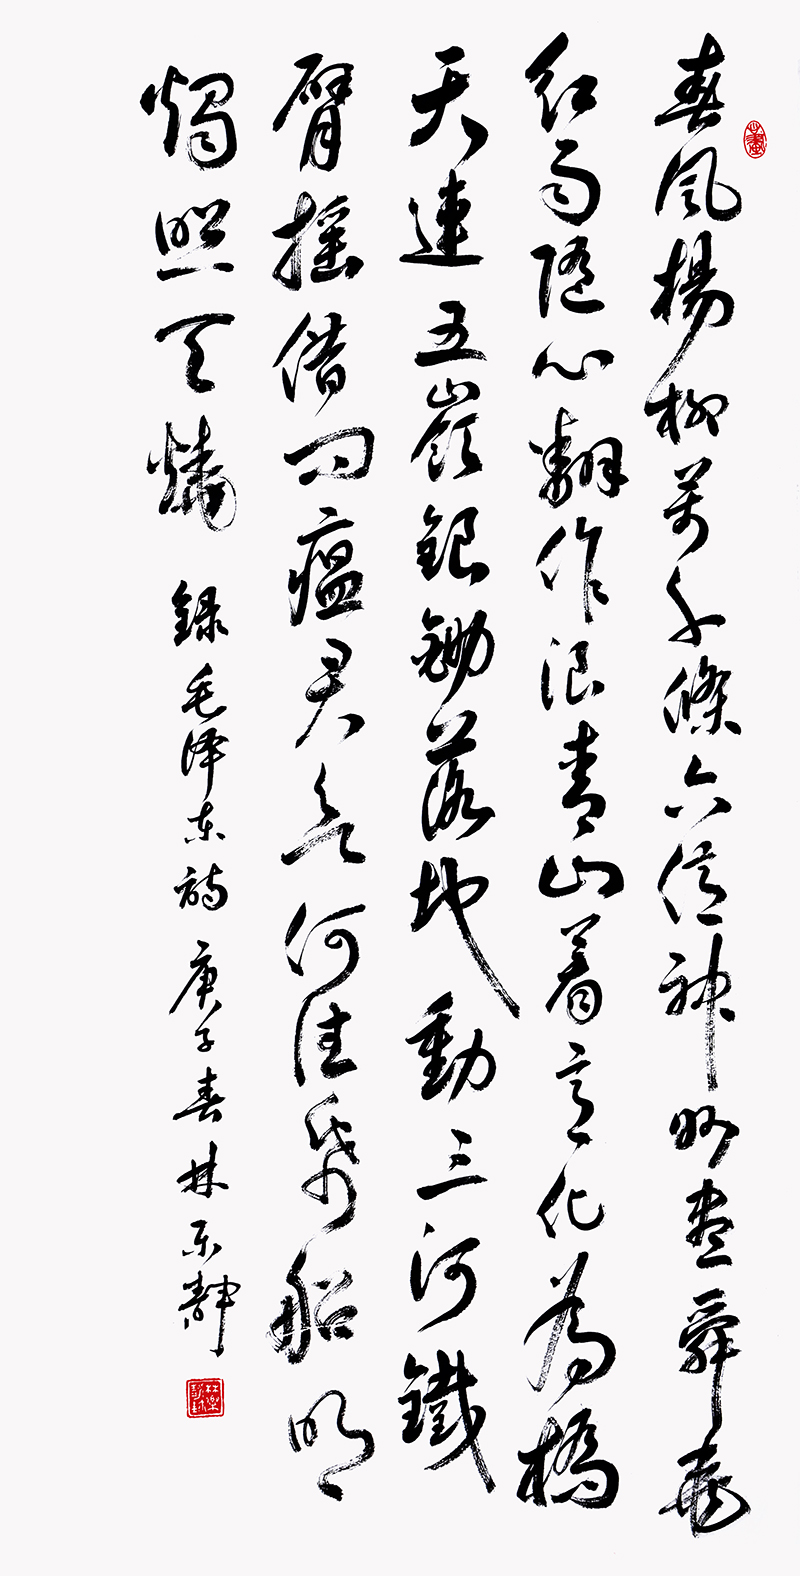 春風楊柳萬千條六億神州盡舜堯
紅雨隨心翻作浪青山着意化為橋
天連五嶺銀鋤落地動三河鐵
臂搖借問瘟君欲何往帋船明
燭照天燒 録毛泽东詩 庚子春林乐静